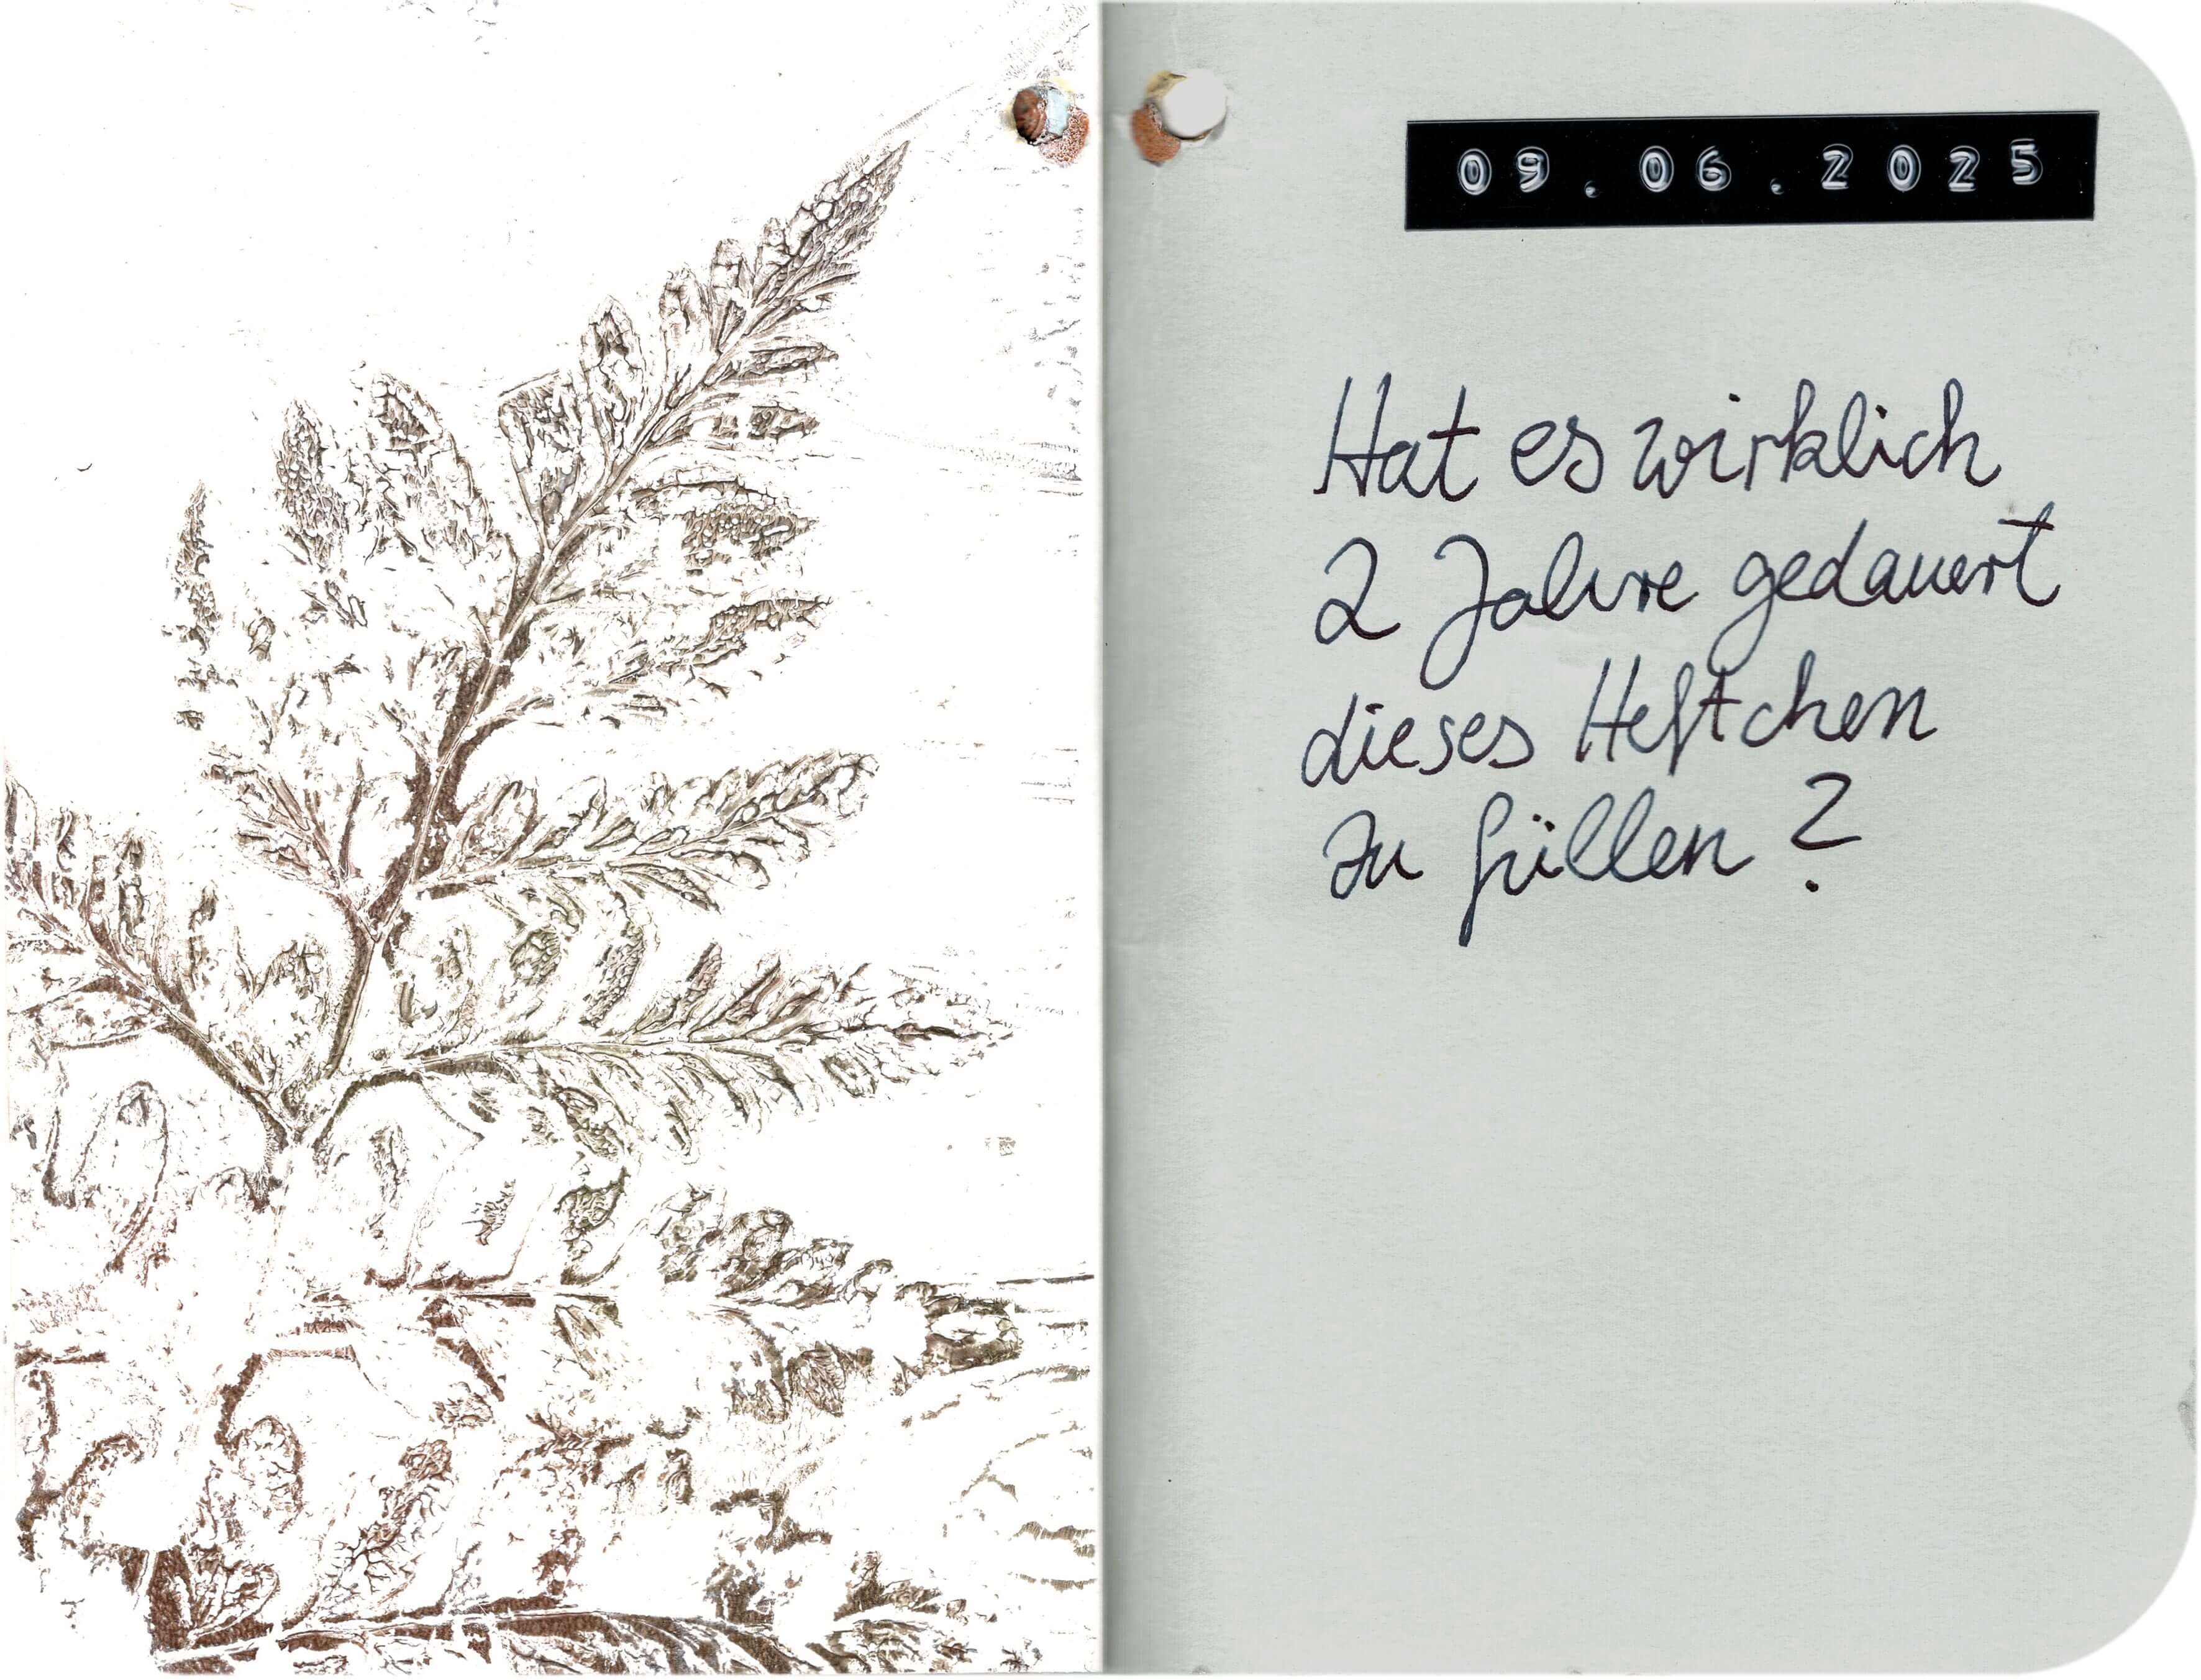 09.06.2025
Hat es wirklich
2 Jahre gedauert
dieses Heftchen
zu füllen?